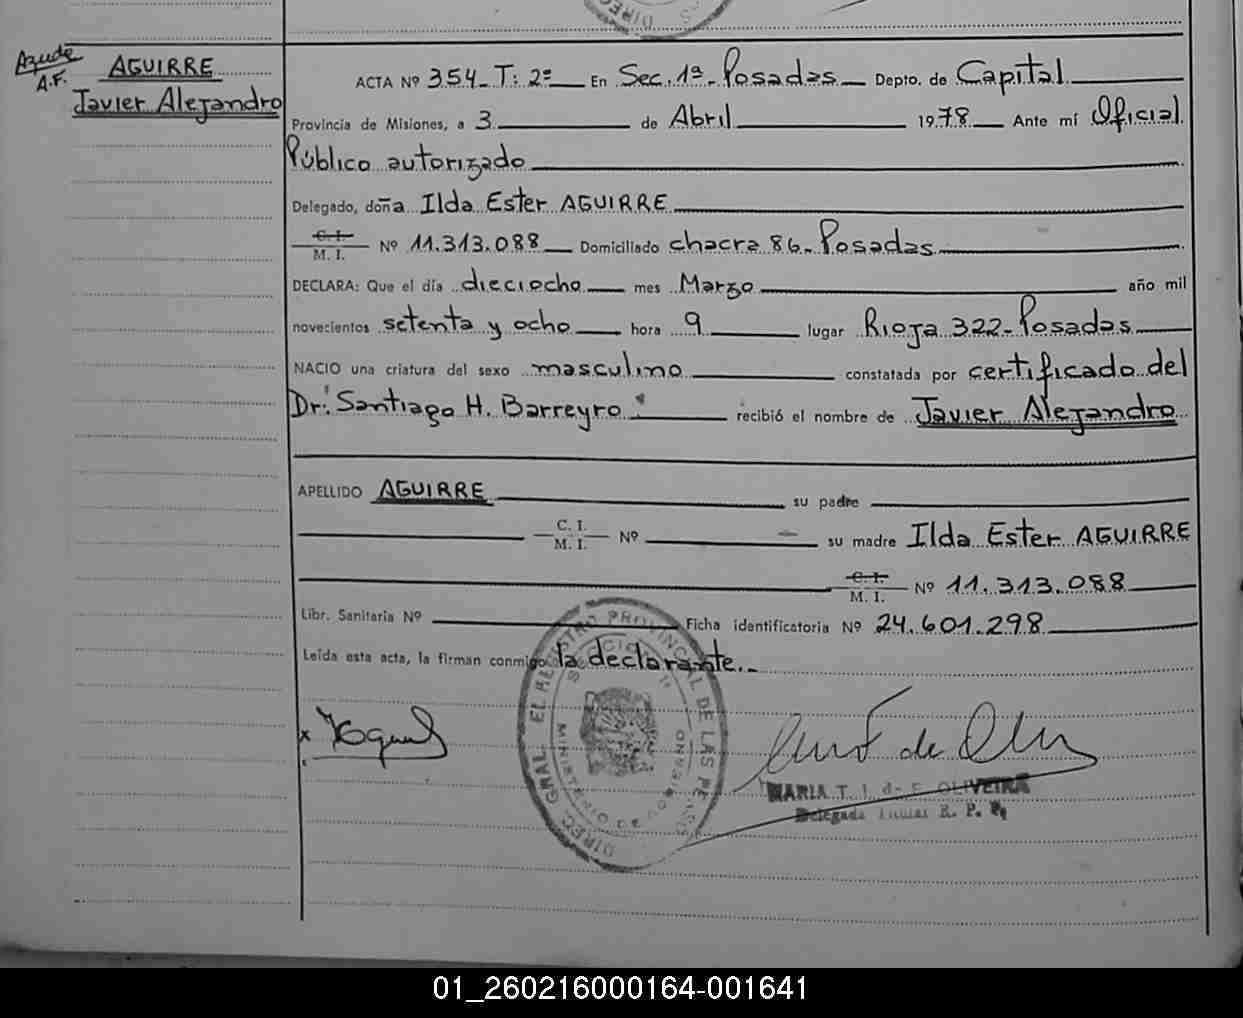 Azude
A.F.
AGUIRRE
Javier Alejandro
ACTA Nº 354 T: 2º En Sec. 1ª Posadas Depto. de Capital
Provincia de Misiones, a 3 de Abril 1978 Ante mí Oficial
Público autorizado
Delegado, doña Ilda Ester AGUIRRE
C. I.
M. I. Nº 11.313.088 Domiciliado chacra 86 - Posadas
DECLARA: Que el día dieciocho mes Marzo año mil
novecientos setenta y ocho hora 9 lugar Rioja 322 - Posadas
NACIO una criatura del sexo masculino constatada por certificado del
Dr. Santiago H. Barreyro recibió el nombre de Javier Alejandro
APELLIDO AGUIRRE su padre
C. I.
M. I. Nº su madre Ilda Ester AGUIRRE
C. I.
M. I. Nº 11.313.088
Libr. Sanitaria Nº Ficha identificatoria Nº 24.601.298
Leída esta acta, la firman conmigo la declarante.-
DIREC. GRAL. EL REGISTRO PROVINCIAL DE LAS PERSO
MINISTERIO DE GOBIERNO
MARIA T. I. de F. OLIVEIRA
Delegada Titular R. P. P.
01_260216000164-001641